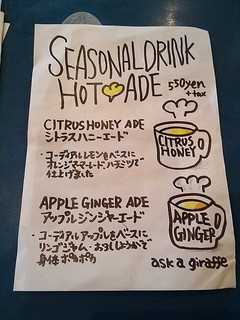 SEASONAL DRINK
HOT ADE
550yen
+tax
CITRUS HONEY ADE
シトラスハニーエード
・コーディアルレモンをベースに
オレンジマーマレード、ハチミツで
仕上げました
CITRUS
HONEY
APPLE GINGER ADE
アップルジンジャーエード
・コーディアルアップルをベースに
リンゴジャム・おろししょうがで
身体ポカポカ
APPLE
GINGER
ask a giraffe